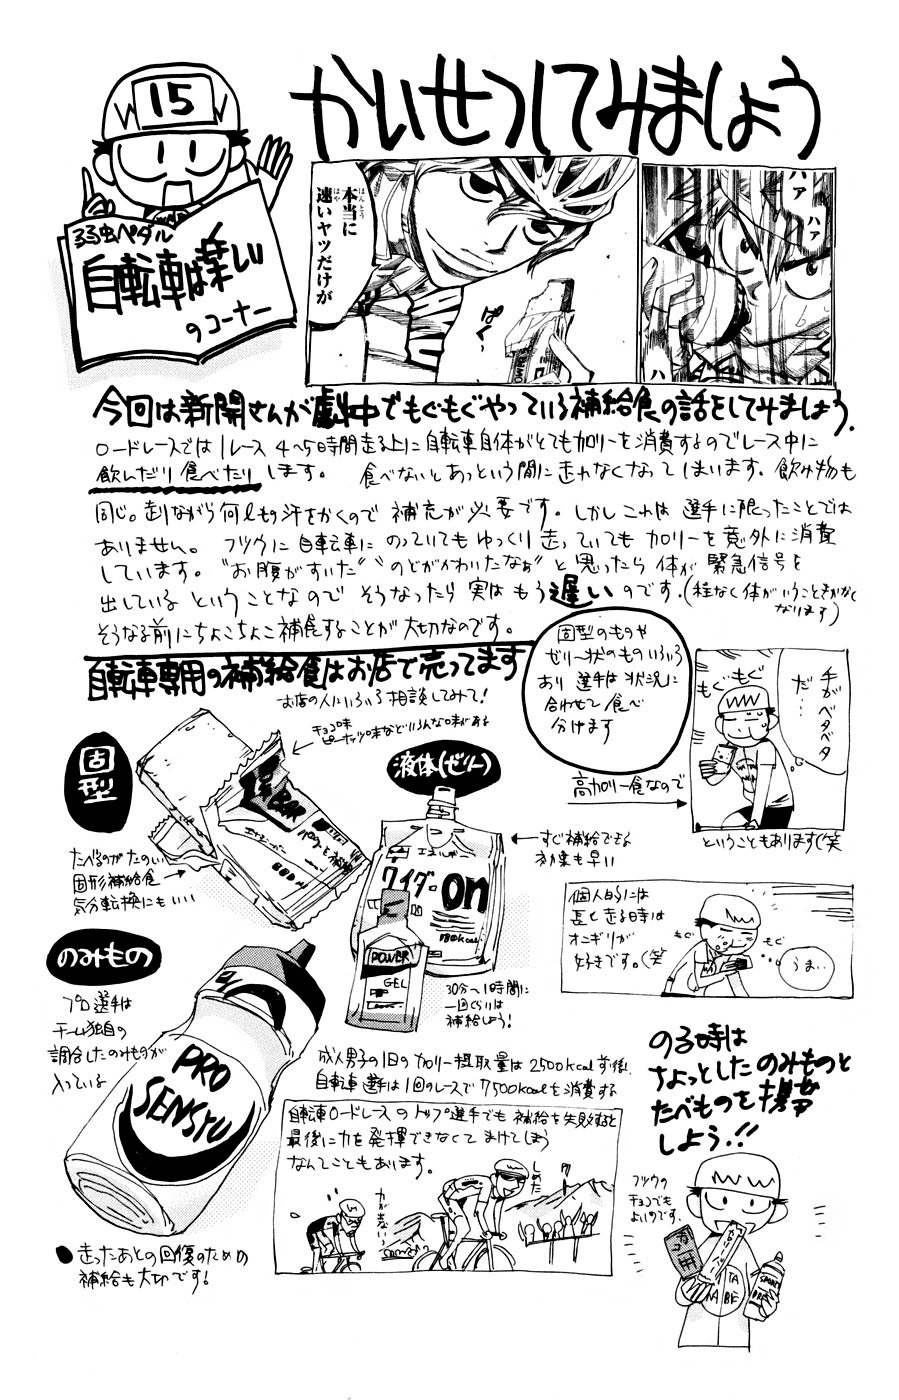 15
かいせつしてみましょう
弱虫ペダル
自転車は楽しい
のコーナー
本当に
ほんとう
速いヤツだけが
はや
ぱく
ハァ
ハァ
今回は新開さんが劇中でもぐもぐやっている補給食の話をしてみましょう.
ロードレースでは1レース 4〜5時間走る上に自転車自体がとてもカロリーを消費するのでレース中に
飲んだり食べたりします。 食べないとあっという間に走れなくなってしまいます。飲み物も
同じ。走りながら何ℓもの汗をかくので 補充が必要です。しかしこれは選手に限ったことでは
ありません。 フツウに自転車に のっていてもゆっくり走っていても カロリーを意外に消費
しています。"お腹がすいた""のどがかわいたなぁ"と思ったら体が緊急信号を
出しているということなので そうなったら実はもう遅いのです。(程なく体がいうことをきかなく
なります)
そうなる前にちょこちょこ補食することが大切なのです。
自転車専用の補給食はお店で売ってます
お店の人にいろいろ相談してみて!
固型のものや
ゼリー状のものいろいろ
あり 選手は状況に
合わせて食べ
分けます
もぐもぐ
手がベタベタ
だ…
高カロリー食なので
ということもあります(笑
チョコ味
ピーナッツ味などいろんな味がある
固型
たべるのがたのしい
固形補給食
気分転換にもいい
液体(ゼリー)
エネルギー
ウイダーon
180kcal
POWER
GEL
すぐ補給できる
効果も早い
30分〜1時間に
一回ぐらいは
補給しよう!
個人的には
長く走る時は
オニギリが
好きです。(笑
もぐ
もぐ
うま…
のみもの
プロ選手は
チーム独自の
調合したのみものが
入っている
PRO
SENSYU
成人男子の1日のカロリー摂取量は2500kcal前後.
自転車選手は1回のレースで7500kcalを消費する
自転車ロードレースのトップ選手でも補給を失敗すると
最後に力を発揮できなくてまけてしまう
なんてこともあります。
力が出ない
しめた
のる時は
ちょっとしたのみものと
たべものを携帯
しよう.!!
フツウの
チョコでも
よいのです.
TA
NA BE
● 走ったあとの回復のための
補給も大切です!